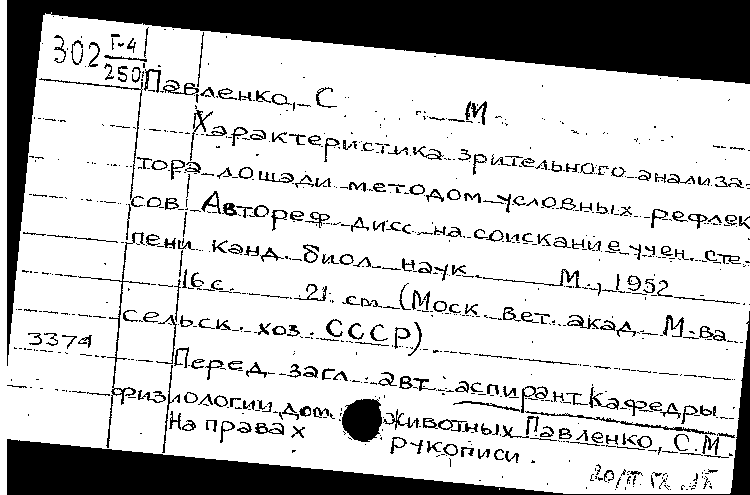 302 Г-4
250
Павленко, С М
Характеристика зрительного анализа-
тора лошади методом условных рефлек
сов Автореф дисс на соискание учен. сте-
пени канд. биол наук. М., 1952
16 с. 21 см (Моск. вет. акад. М-ва
сельск. хоз. СССР)
3374
Перед загл. авт аспирант Кафедры
физиологии дом. животных Павленко, С.М.
На правах рукописи.